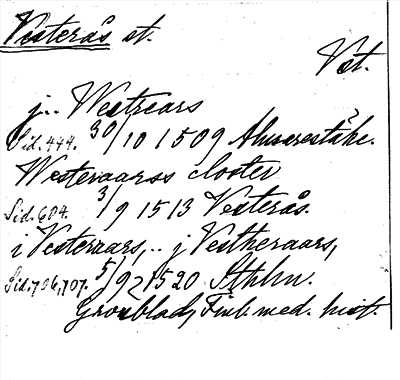 Vesterås st.
Vst.
j.. Westrears
Sid. 444. 30/10 1509
Westeraarss closter
Sid. 604. 3/9 1513 Vesterås.
i Vesteraars, .. j Vestheraars,
Sid. 706, 707. 5/9 1520 Sthlm.
Grönblad, Finl. med. hist.